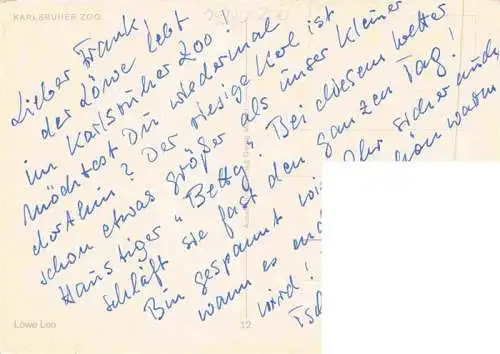 KARLSRUHER ZOO
Lieber Frank
der Löwe lebt
im Karlsruher Zoo!
Möchtest Du wiedermal
dorthin? Der riesige Kerl ist
schon etwas größer als unser kleiner
Haustiger "Betty". Bei diesem Wetter
schläft sie fast den ganzen Tag!
Bin gespannt
wann es
wird!
Ihr sicher
schön warm
Löwe Leo
12